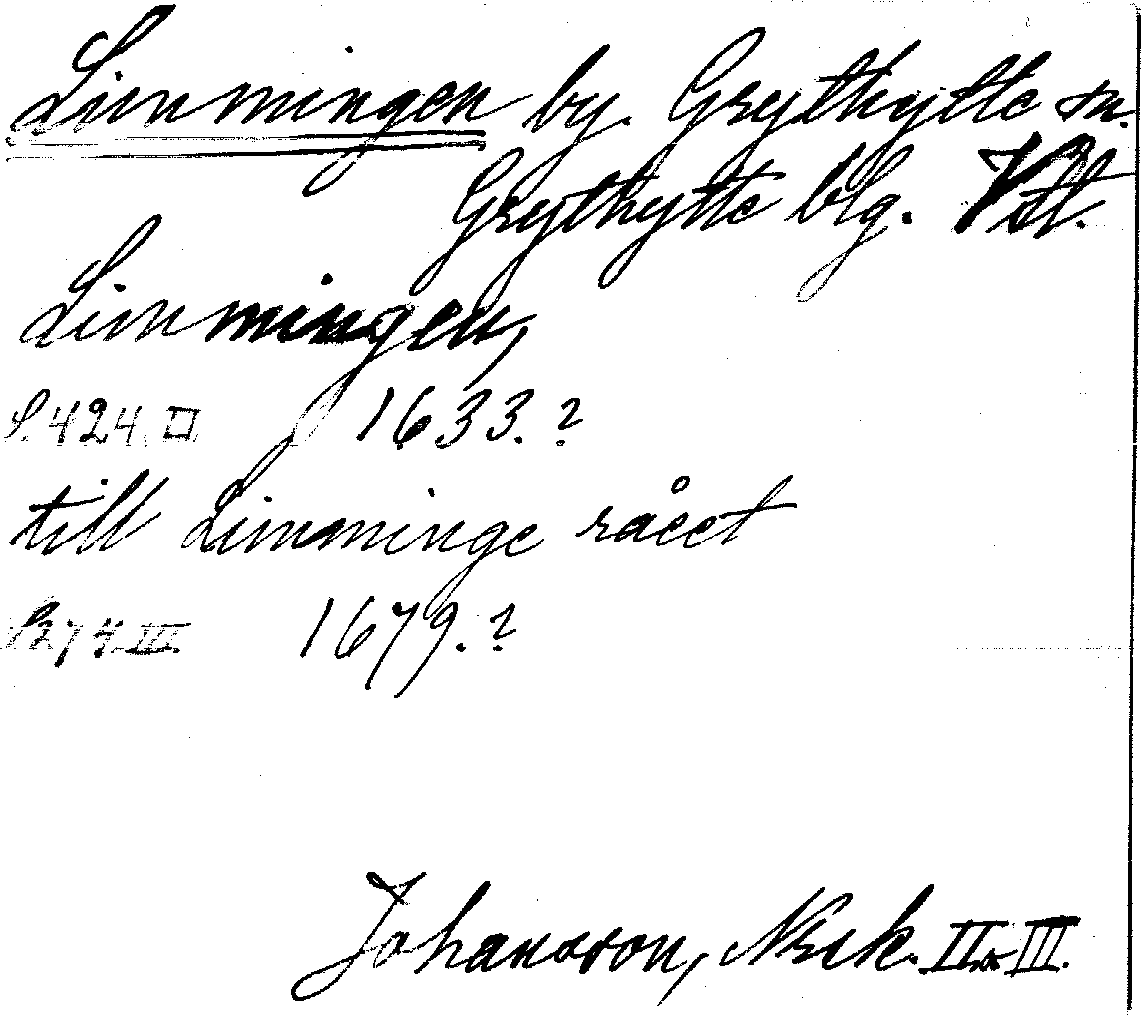 Limmingen by. Grythytte sn.
Grythytte blg. Vstl.
Limmingen,
S. 424. II 1633.?
till Limminge råeet
S. 274. III 1679.?
Johansson, Nsk. II o. III.